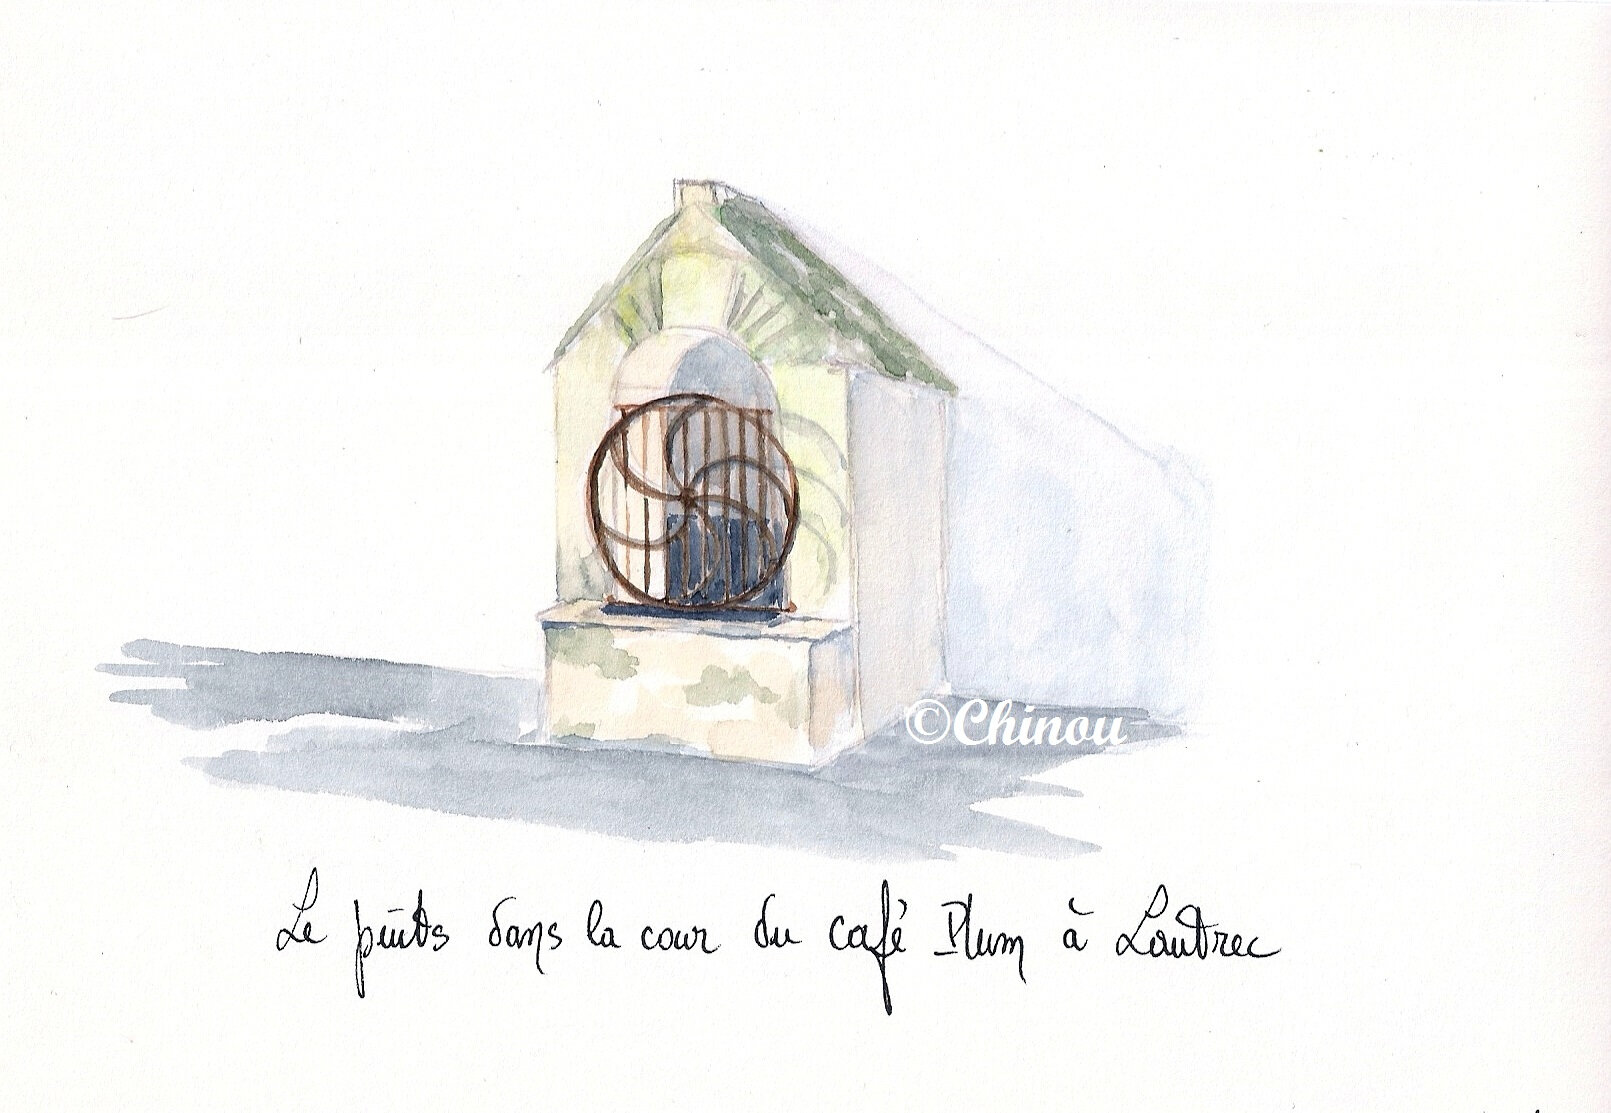 ©Chinou
Le puits dans la cour du café Plum à Lautrec